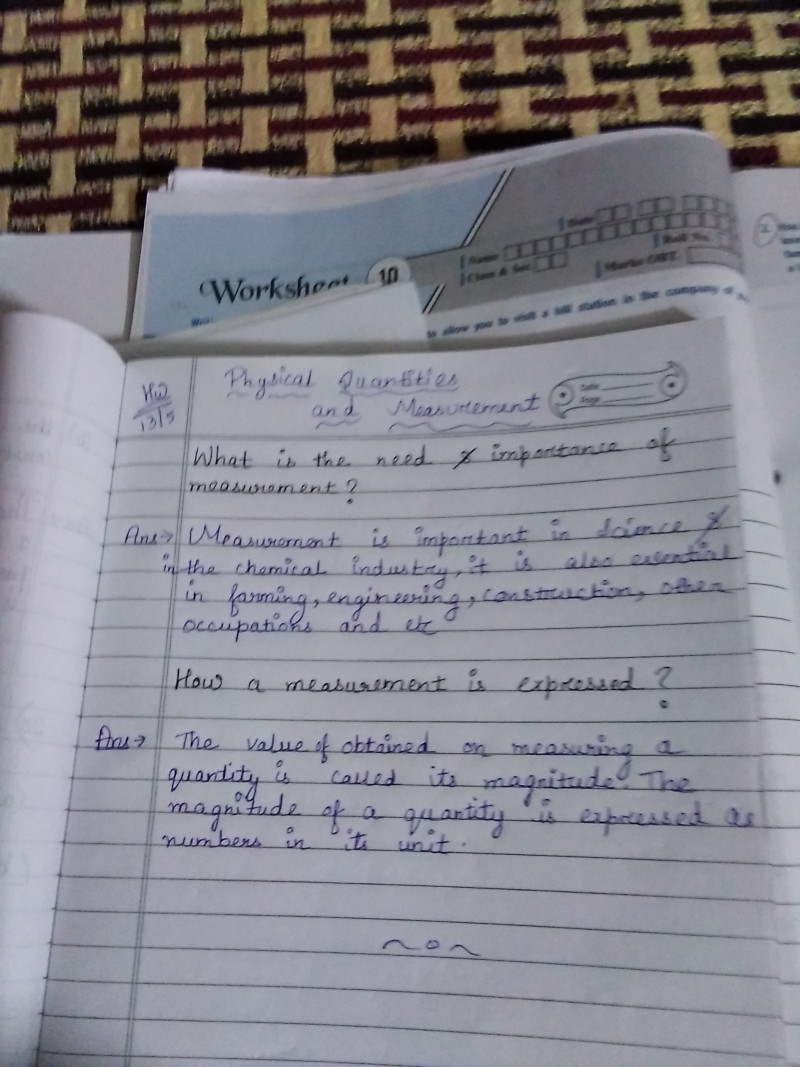 Worksheet 10
Date
Name
Roll No.
Class & Sec.
Marks Obt.
to allow you to visit a hill station in the company of
2
HW
13/5
Physical Quantities
and Measurement
Date
Page
What is the need & importance of
measurement?
Ans→ Measurement is important in science &
in the chemical industry, it is also essential
in farming, engineering, construction, other
occupations and etc
How a measurement is expressed?
Ans→ The value of obtained on measuring a
quantity is called its magnitude. The
magnitude of a quantity is expressed as
numbers in its unit.